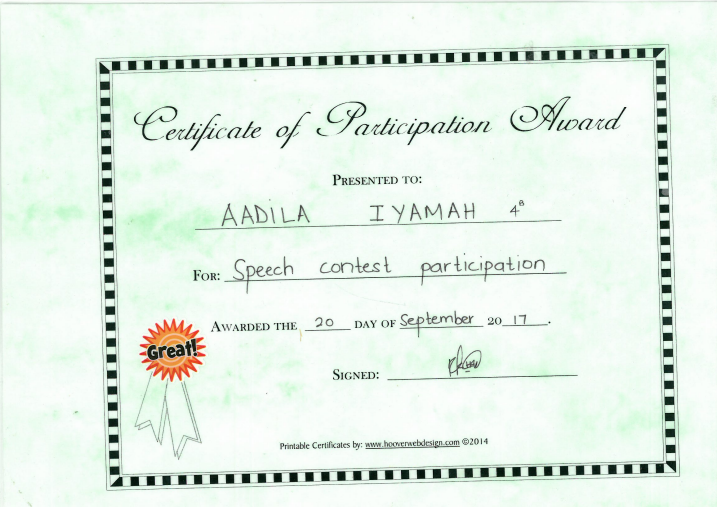 Certificate of Participation Award
PRESENTED TO:
AADILA IYAMAH 4B
FOR: Speech contest participation
AWARDED THE 20 DAY OF September 20 17.
Great!
SIGNED:
Printable Certificates by: www.hooverwebdesign.com ©2014